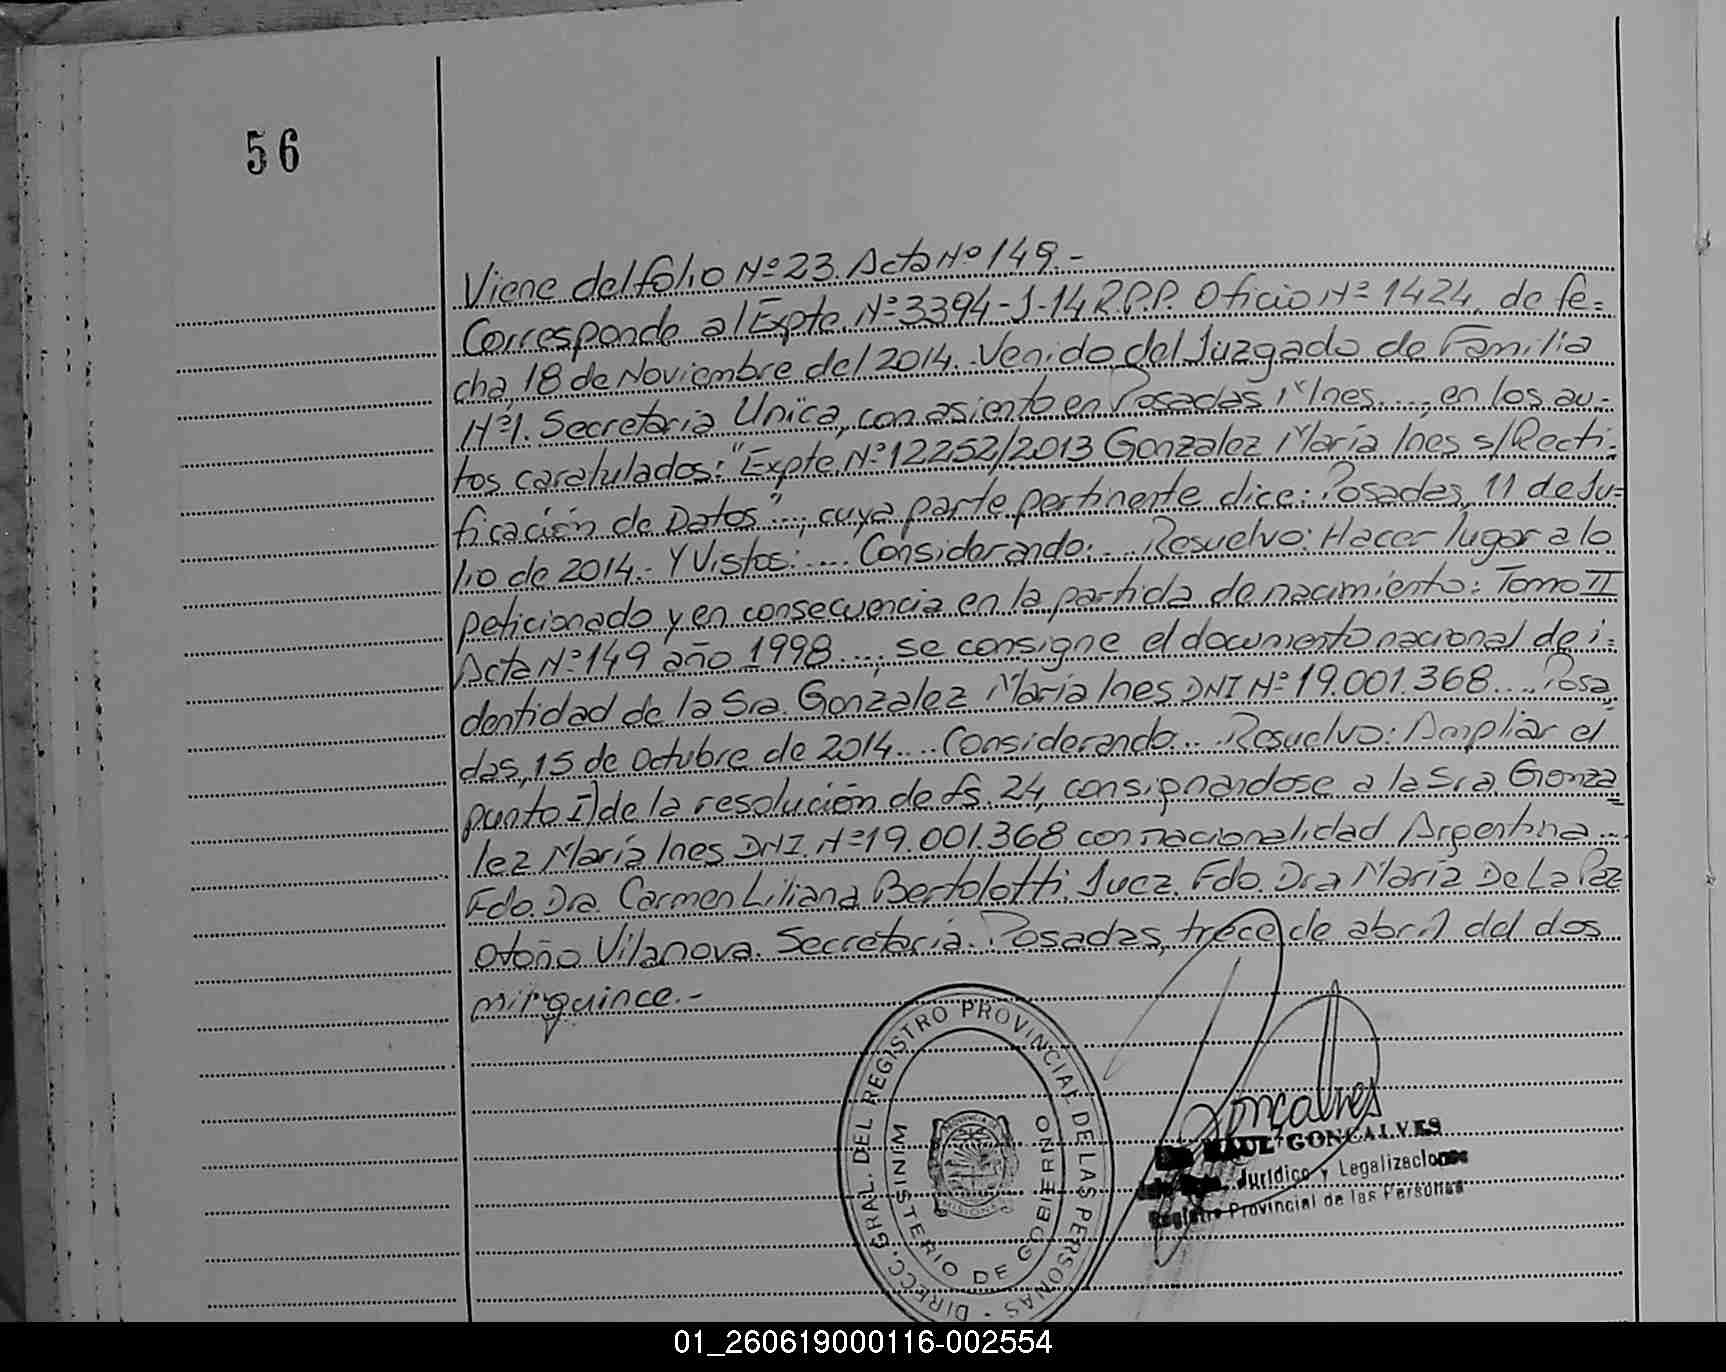 56
Viene del folio Nº 23. Acta Nº 149.-
Corresponde al Expte. Nº 3394-J-14 R.P.P. Oficio Nº 1424, de fe=
cha, 18 de Noviembre del 2014. Venido del Juzgado de Familia
Nº1. Secretaria Unica, con asiento en Posadas Mnes...., en los au=
tos caratulados: "Expte. Nº 12252/2013 Gonzalez María Ines s/Recti=
ficación de Datos"..., cuya parte pertinente dice: Posadas, 11 de Ju=
lio de 2014.- Y Vistos:.... Considerando:... Resuelvo: Hacer lugar a lo
peticionado y en consecuencia en la partida de nacimiento: Tomo II
Acta Nº 149 año 1998...., se consigne el documento nacional de i=
dentidad de la Sra. Gonzalez María Ines DNI Nº 19.001.368.... Posa,
das, 15 de Octubre de 2014.... Considerando... Resuelvo: Ampliar el
punto I) de la resolución de fs. 24, consignandose a la Sra Gonza=
lez María Ines DNI. Nº 19.001.368 con nacionalidad Argentina...
Fdo. Dra. Carmen Liliana Bertolotti. Juez. Fdo. Dra María De La Paz
Otoño Vilanova. Secretaria. Posadas, trece de abril del dos
mil quince.-
DIRECC. GRAL. DEL REGISTRO PROVINCIAL DE LAS PERSONAS
MINISTERIO DE GOBIERNO
MISIONES
Goncalves
RAUL GONCALVES
Jurídico y Legalizaciones
Registro Provincial de las Personas
01_260619000116-002554